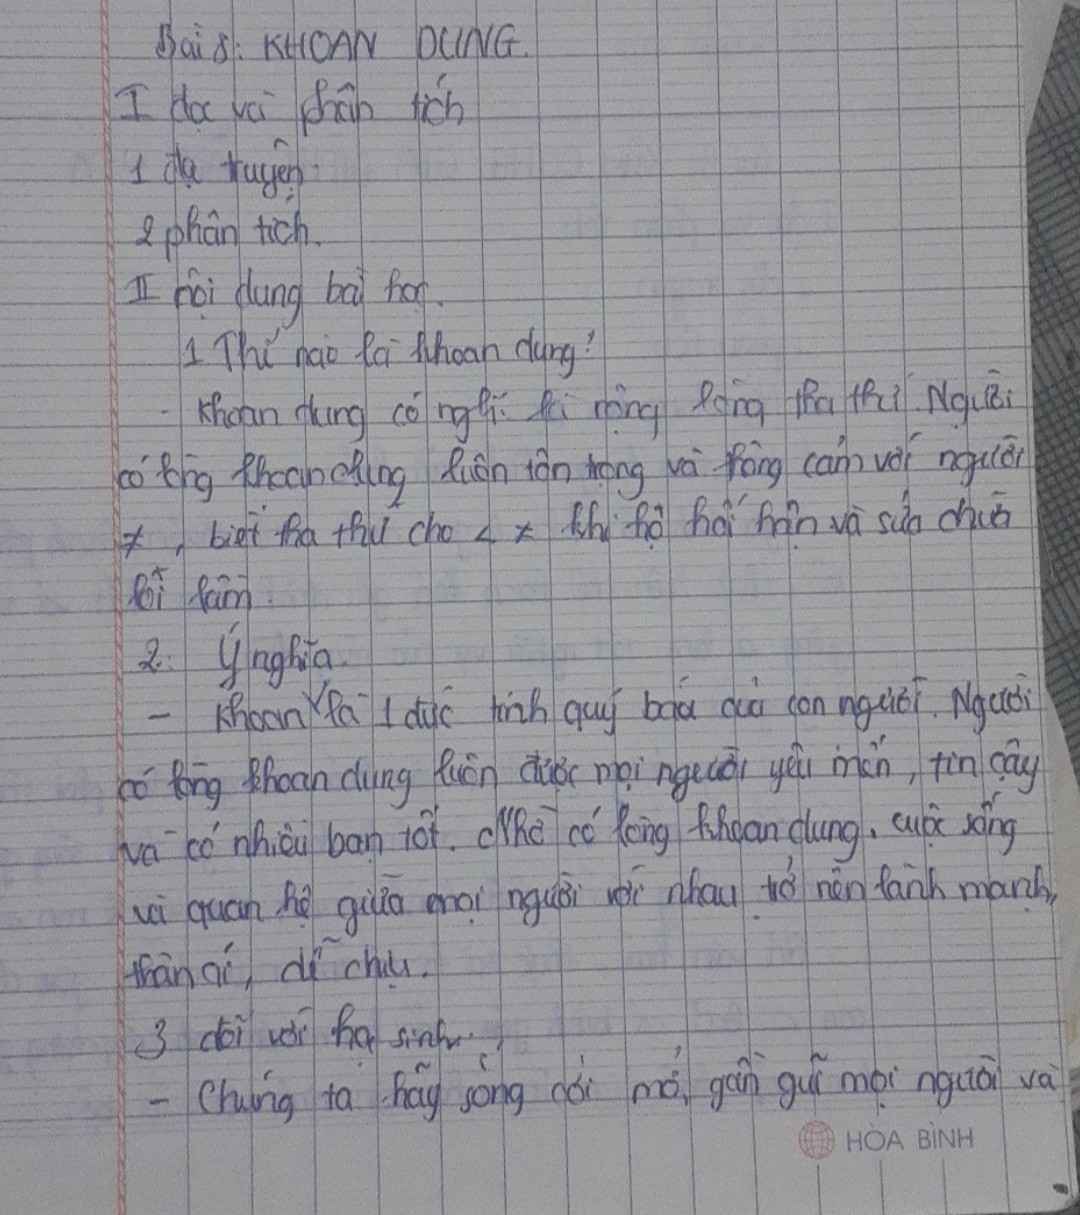 Bài 8: KHOAN DUNG.
I đọc và phân tích
1 đọc truyện
2 phân tích.
II nội dung bài học.
1 Thế nào là khoan dung?
- Khoan dung có nghĩ là rộng lòng tha thứ. Người
có lòng khoan dung luôn tôn trọng và thông cảm với người
≠, biết tha thứ cho ≠ khi họ hối hận và sửa chữa
lỗi lầm.
2. Ý nghĩa.
- Khoan là 1 đức tính quý báu của con người. Người
có lòng khoan dung luôn được mọi người yêu mến, tin cậy
và có nhiều bạn tốt. Nhờ có lòng khoan dung, cuộc sống
và quan hệ giữa mọi người với nhau trở nên lành mạnh,
thân ái, dễ chịu.
3 đối với học sinh.
- Chúng ta hãy sống cởi mở, gần gũi mọi người và
HÒA BÌNH